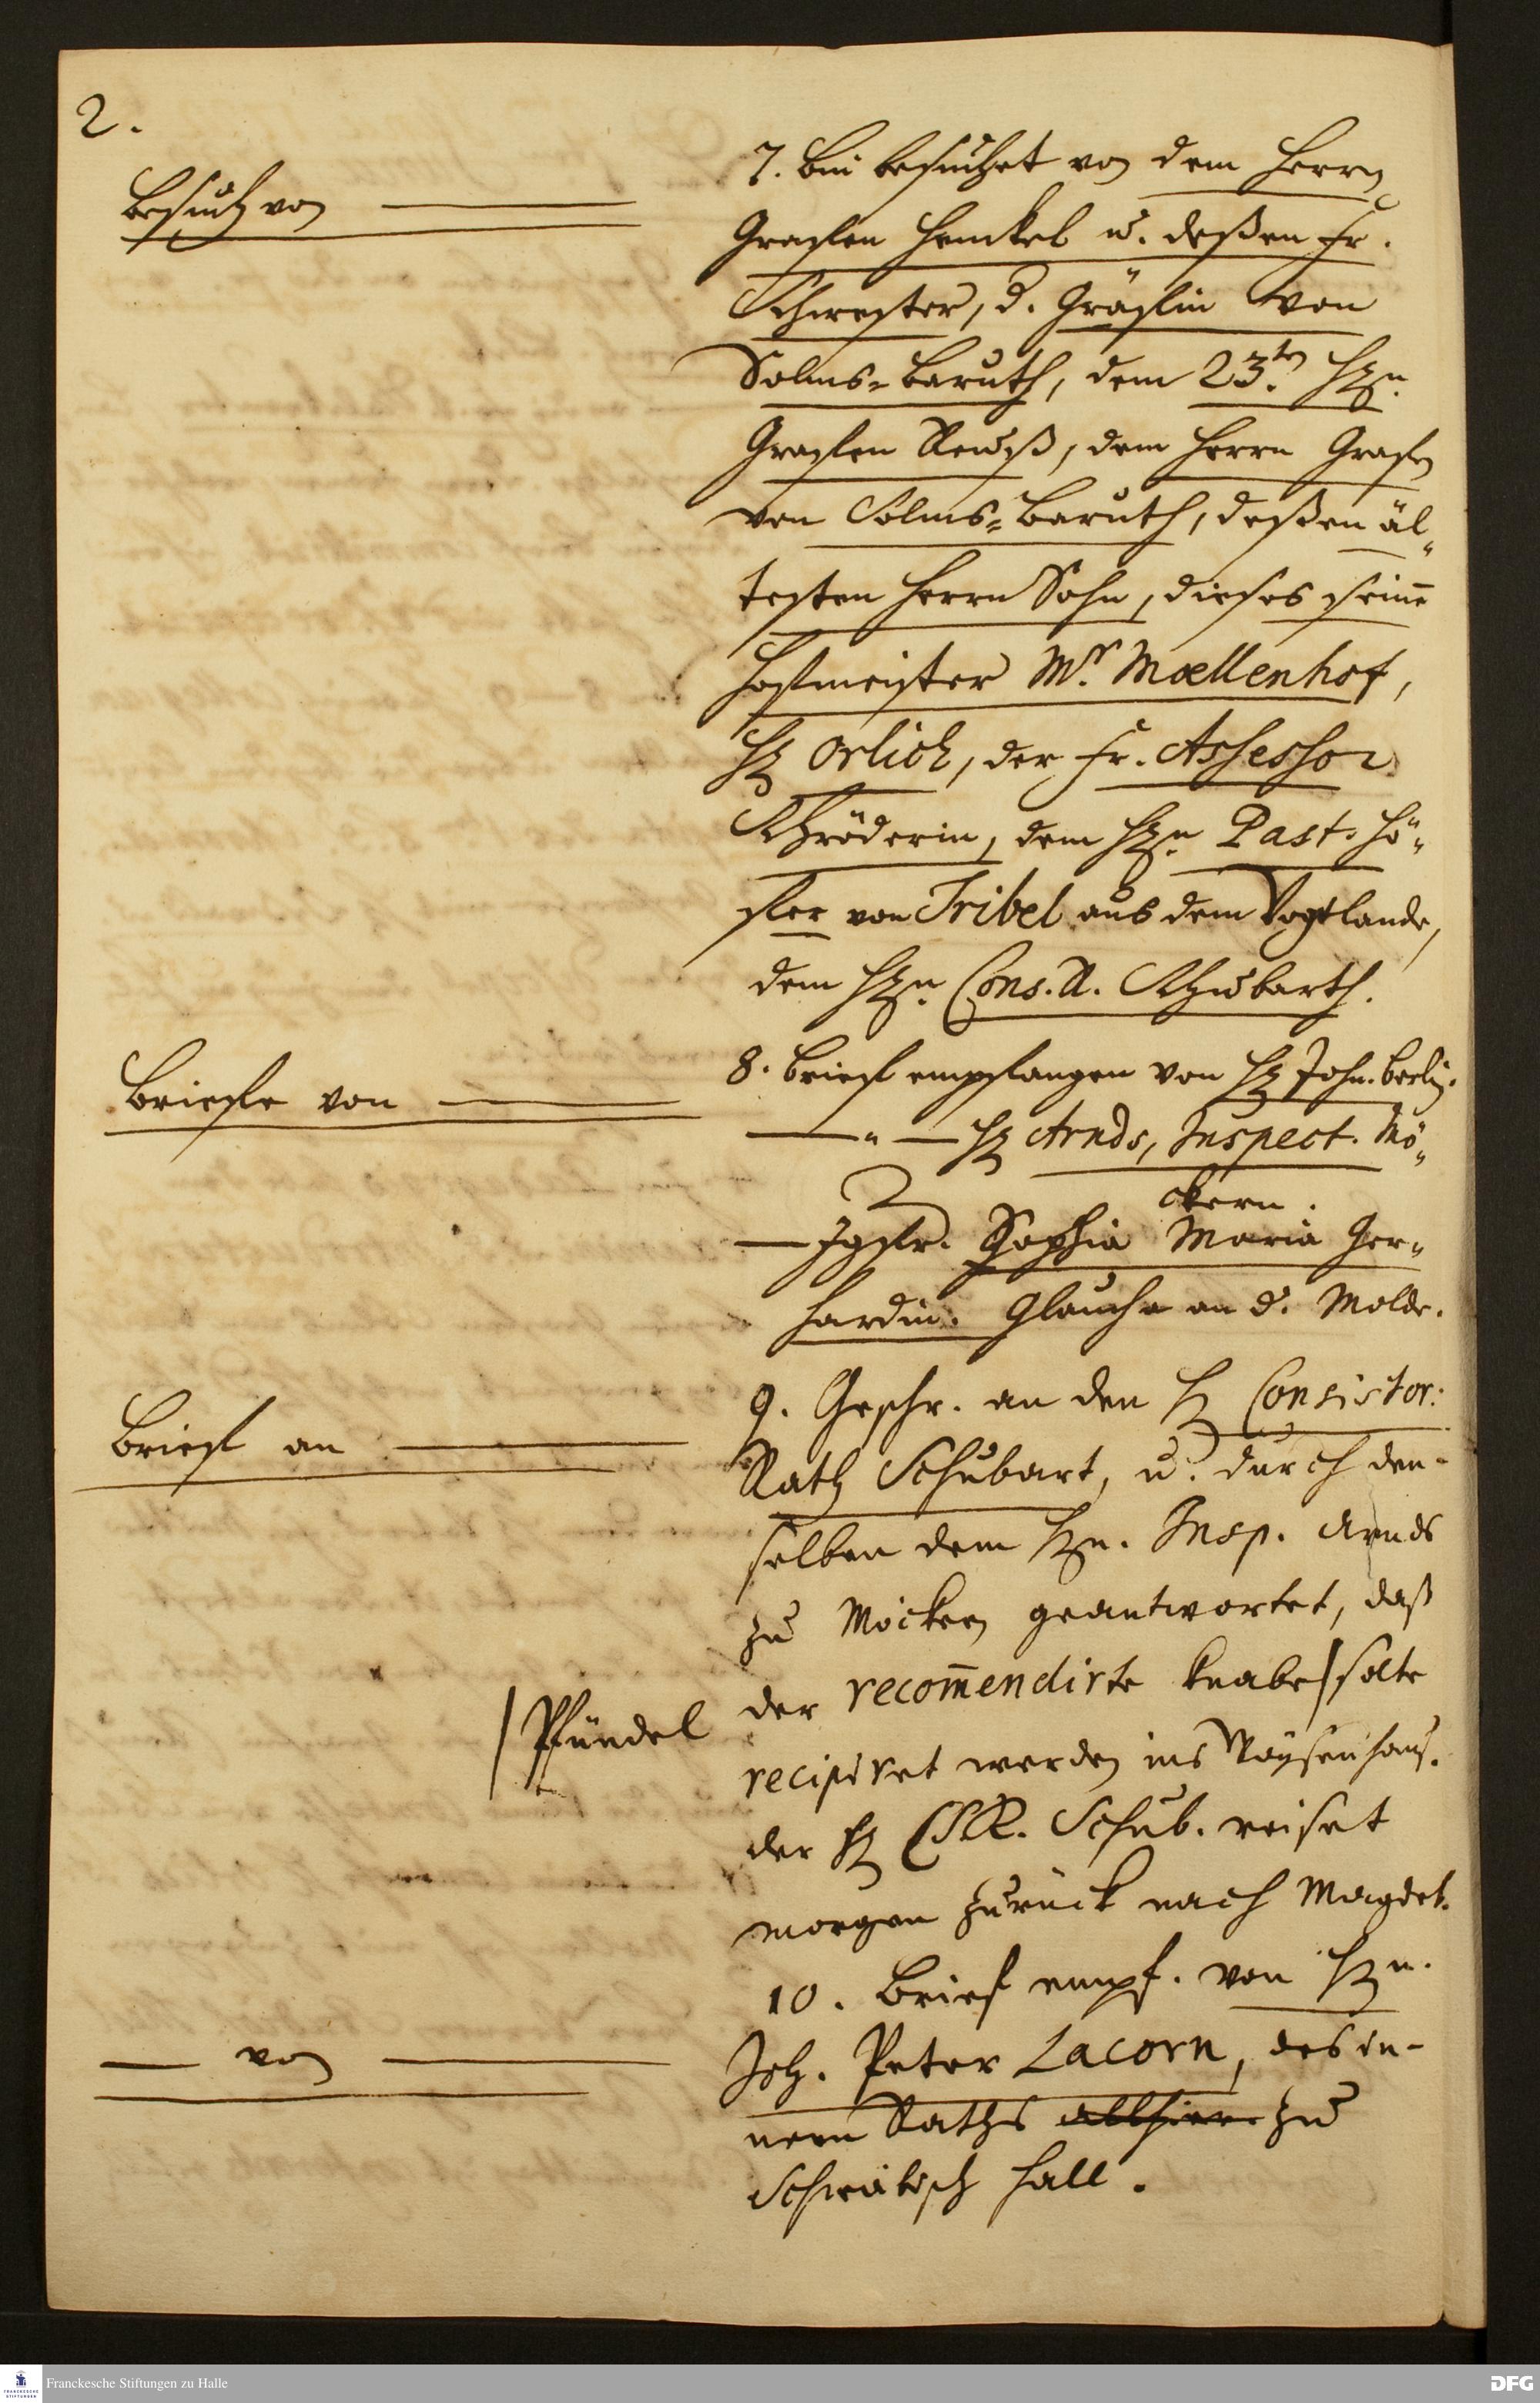 2.
Besuch von
7. bin besuchet von dem Herrn
Graffen Henckel u. deßen Fr.
Schwester, d. Gräffin von
Solms-Baruth, dem 23.ten HEn.
Graffen Reuß, dem Herrn Grafen
von Solms-Baruth, deßen äl-
testen Herrn Sohn, dieses seinē
Hoffmeister Mr. Moellenhof,
H Orlich, der Fr. Assessor
Schröderin, dem HEn. Past. Hö-
fler von Tribel aus dem Vogtlande,
dem HEn. Cons. R. Schubarth.
Brieffe von
8. Brieff empfangen von H John. Berlin.
— " — H Arnds, Inspect. Mö-
ckern.
— Jgfr. Sophia Maria Ger-
hardin. Glaucha an d. Molde.
Brieff an
9. Geschr. an den H Consistor:
Rath Schubart, u. durch den-
selben dem HEn. Insp. Arnds
zu Möckern geantwortet, daß
der recom̄endirte Knabe / solte
/ Pfündel
recipiret werden ins Waysenhaus.
der H CR. Schub. reiset
morgen zurück nach Magdeb.
10. Brief empf. von HEn.
— von
Joh. Peter Lacorn, des in-
nern Raths allhier zu
Schwäbisch Hall.
Franckesche Stiftungen zu Halle
DFG